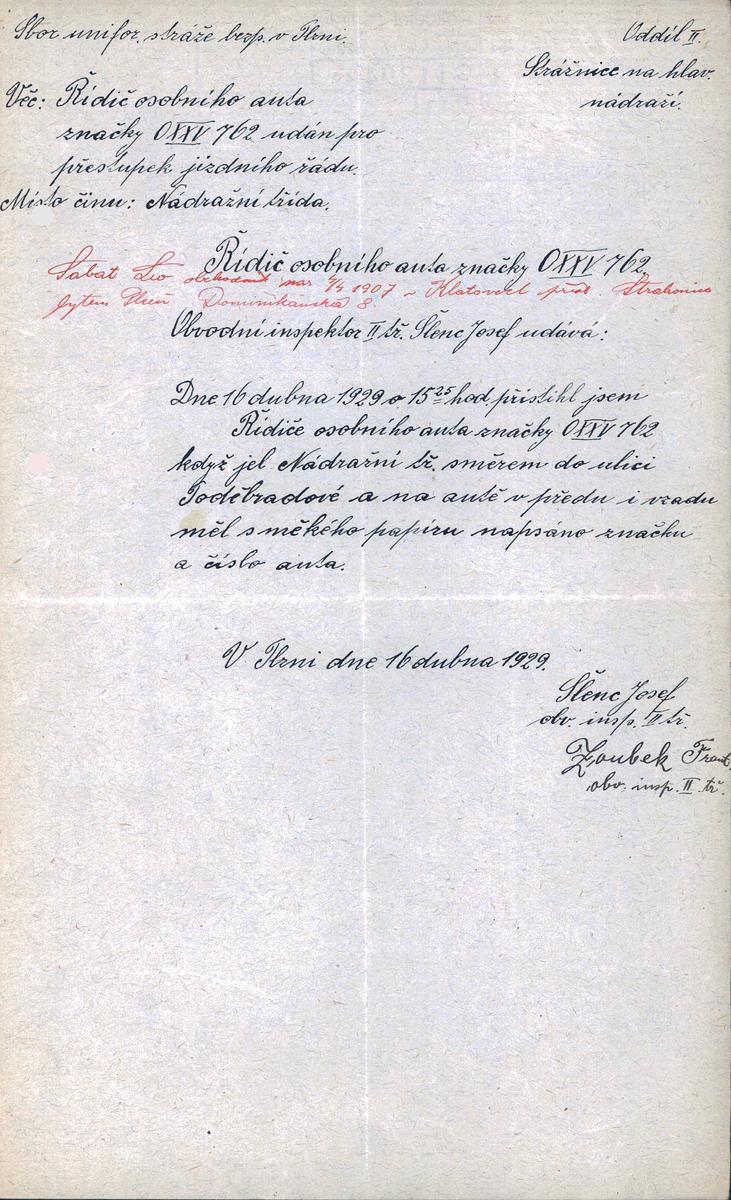 Sbor unifor. stráže bezp. v Plzni.
Oddíl II.
Strážnice na hlav.
nádraží.
Věc: Řidič osobního auta
značky O XXV 762 udán pro
přestupek jízdního řádu.
Místo činu: Nádražní třída.
Řidič osobního auta značky O XXV 762.
Sabat Leo obchodník nar. 1907 v Klatovech přísl. Strakonice
bytem Plzeň Dominikánská 8.
Obvodní inspektor II tř. Šlenc Josef udává:
Dne 16 dubna 1929 o 15 25 hod. přistihl jsem
Řidiče osobního auta značky O XXV 762
když jel Nádražní tř. směrem do ulici
Poděbradové a na autě v předu i vzadu
měl s měkého papíru napsáno značku
a číslo auta.
V Plzni dne 16 dubna 1929.
Šlenc Josef
obv. insp. II tř.
Zoubek Frant.
obv. insp. II. tř.